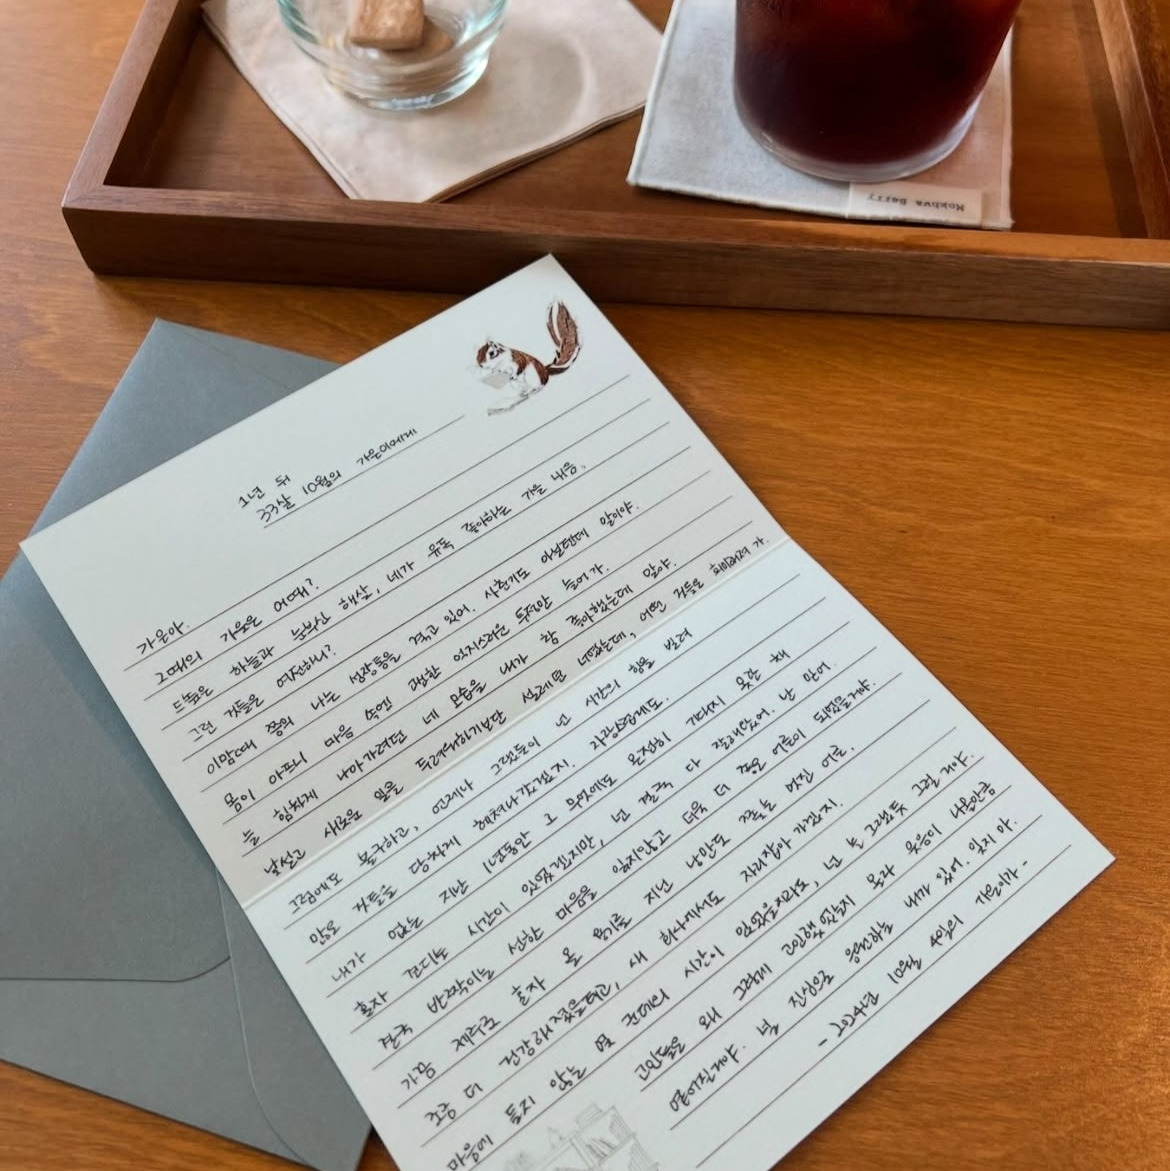 Mokhwa Berry
1년 뒤
33살 10월의 가은이에게
가은아.
그때의 가을은 어때?
드높은 하늘과 눈부신 햇살, 네가 유독 좋아하는 가을 내음.
그런 것들은 여전하니?
이맘때 쯤의 나는 성장통을 겪고 있어. 사춘기도 아닐텐데 말이야.
몸이 아프니 마음 속엔 괜한 억지스러운 투정만 늘어가.
늘 힘차게 나아가려던 네 모습을 내가 참 좋아했는데 말야.
낯설고 새로운 일을 두려워하기보단 설레던 너였는데, 어떤 것들은 희미해져 가.
그럼에도 불구하고, 언제나 그랬듯이 넌 시간의 힘을 빌려
많은 것들을 당차게 헤쳐나갔겠지. 자랑스럽게도.
내가 없는 지난 1년동안 그 무엇에도 온전히 기대지 못한 채
홀자 견디는 시간이 있었겠지만, 넌 결국 다 잘해냈어. 난 믿어.
결국 반짝이는 선한 마음을 잃지않고 더욱 더 좋은 어른이 되었을거야.
가끔 제주로 혼자 올 용기를 지닌 낭만도 있는 멋진 어른.
조금 더 건강해졌을테고, 새 회사에서도 자리잡아 가겠지.
마음에 들지 않는 몇 번째의 시간이 있었을지라도, 넌 늘 그랬듯 그럴 거야.
고민들을 왜 그렇게 고민했었는지 몰라 웃음이 나올만큼
옅어질거야. 널 진심으로 응원하는 내가 있어. 잊지 마.
- 2024년 10월 4일의 가은이가 -